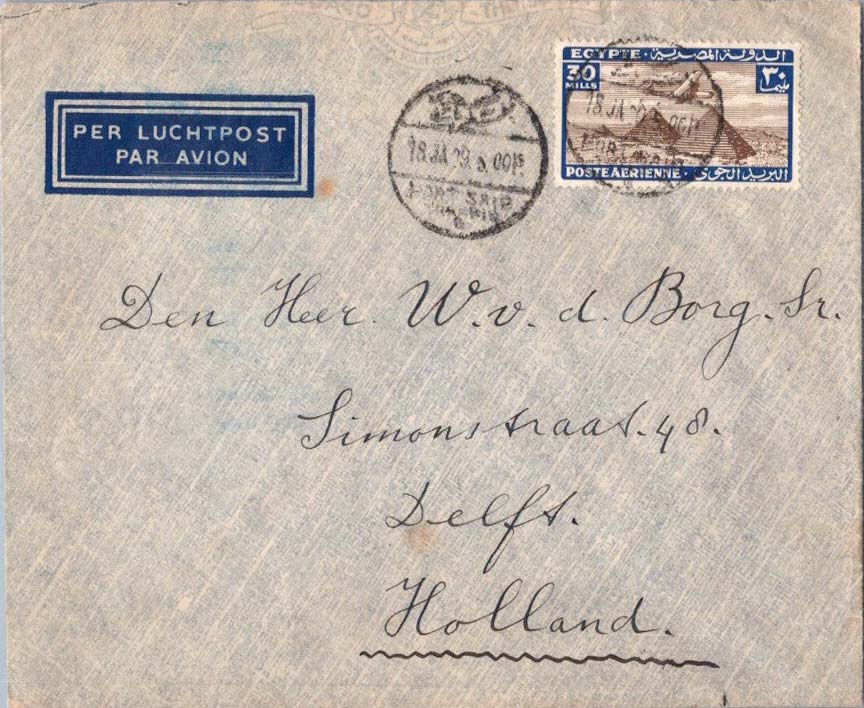 PER LUCHTPOST
PAR AVION
18 JA 39. 5.00 P
PORT SAID
EGYPTE · الدولة المصرية
30 ٣٠
MILLS مليم
POSTE AERIENNE · البريد الجوى
Den Heer. W. v. d. Borg. Sr.
Simonstraat. 48.
Delft.
Holland.